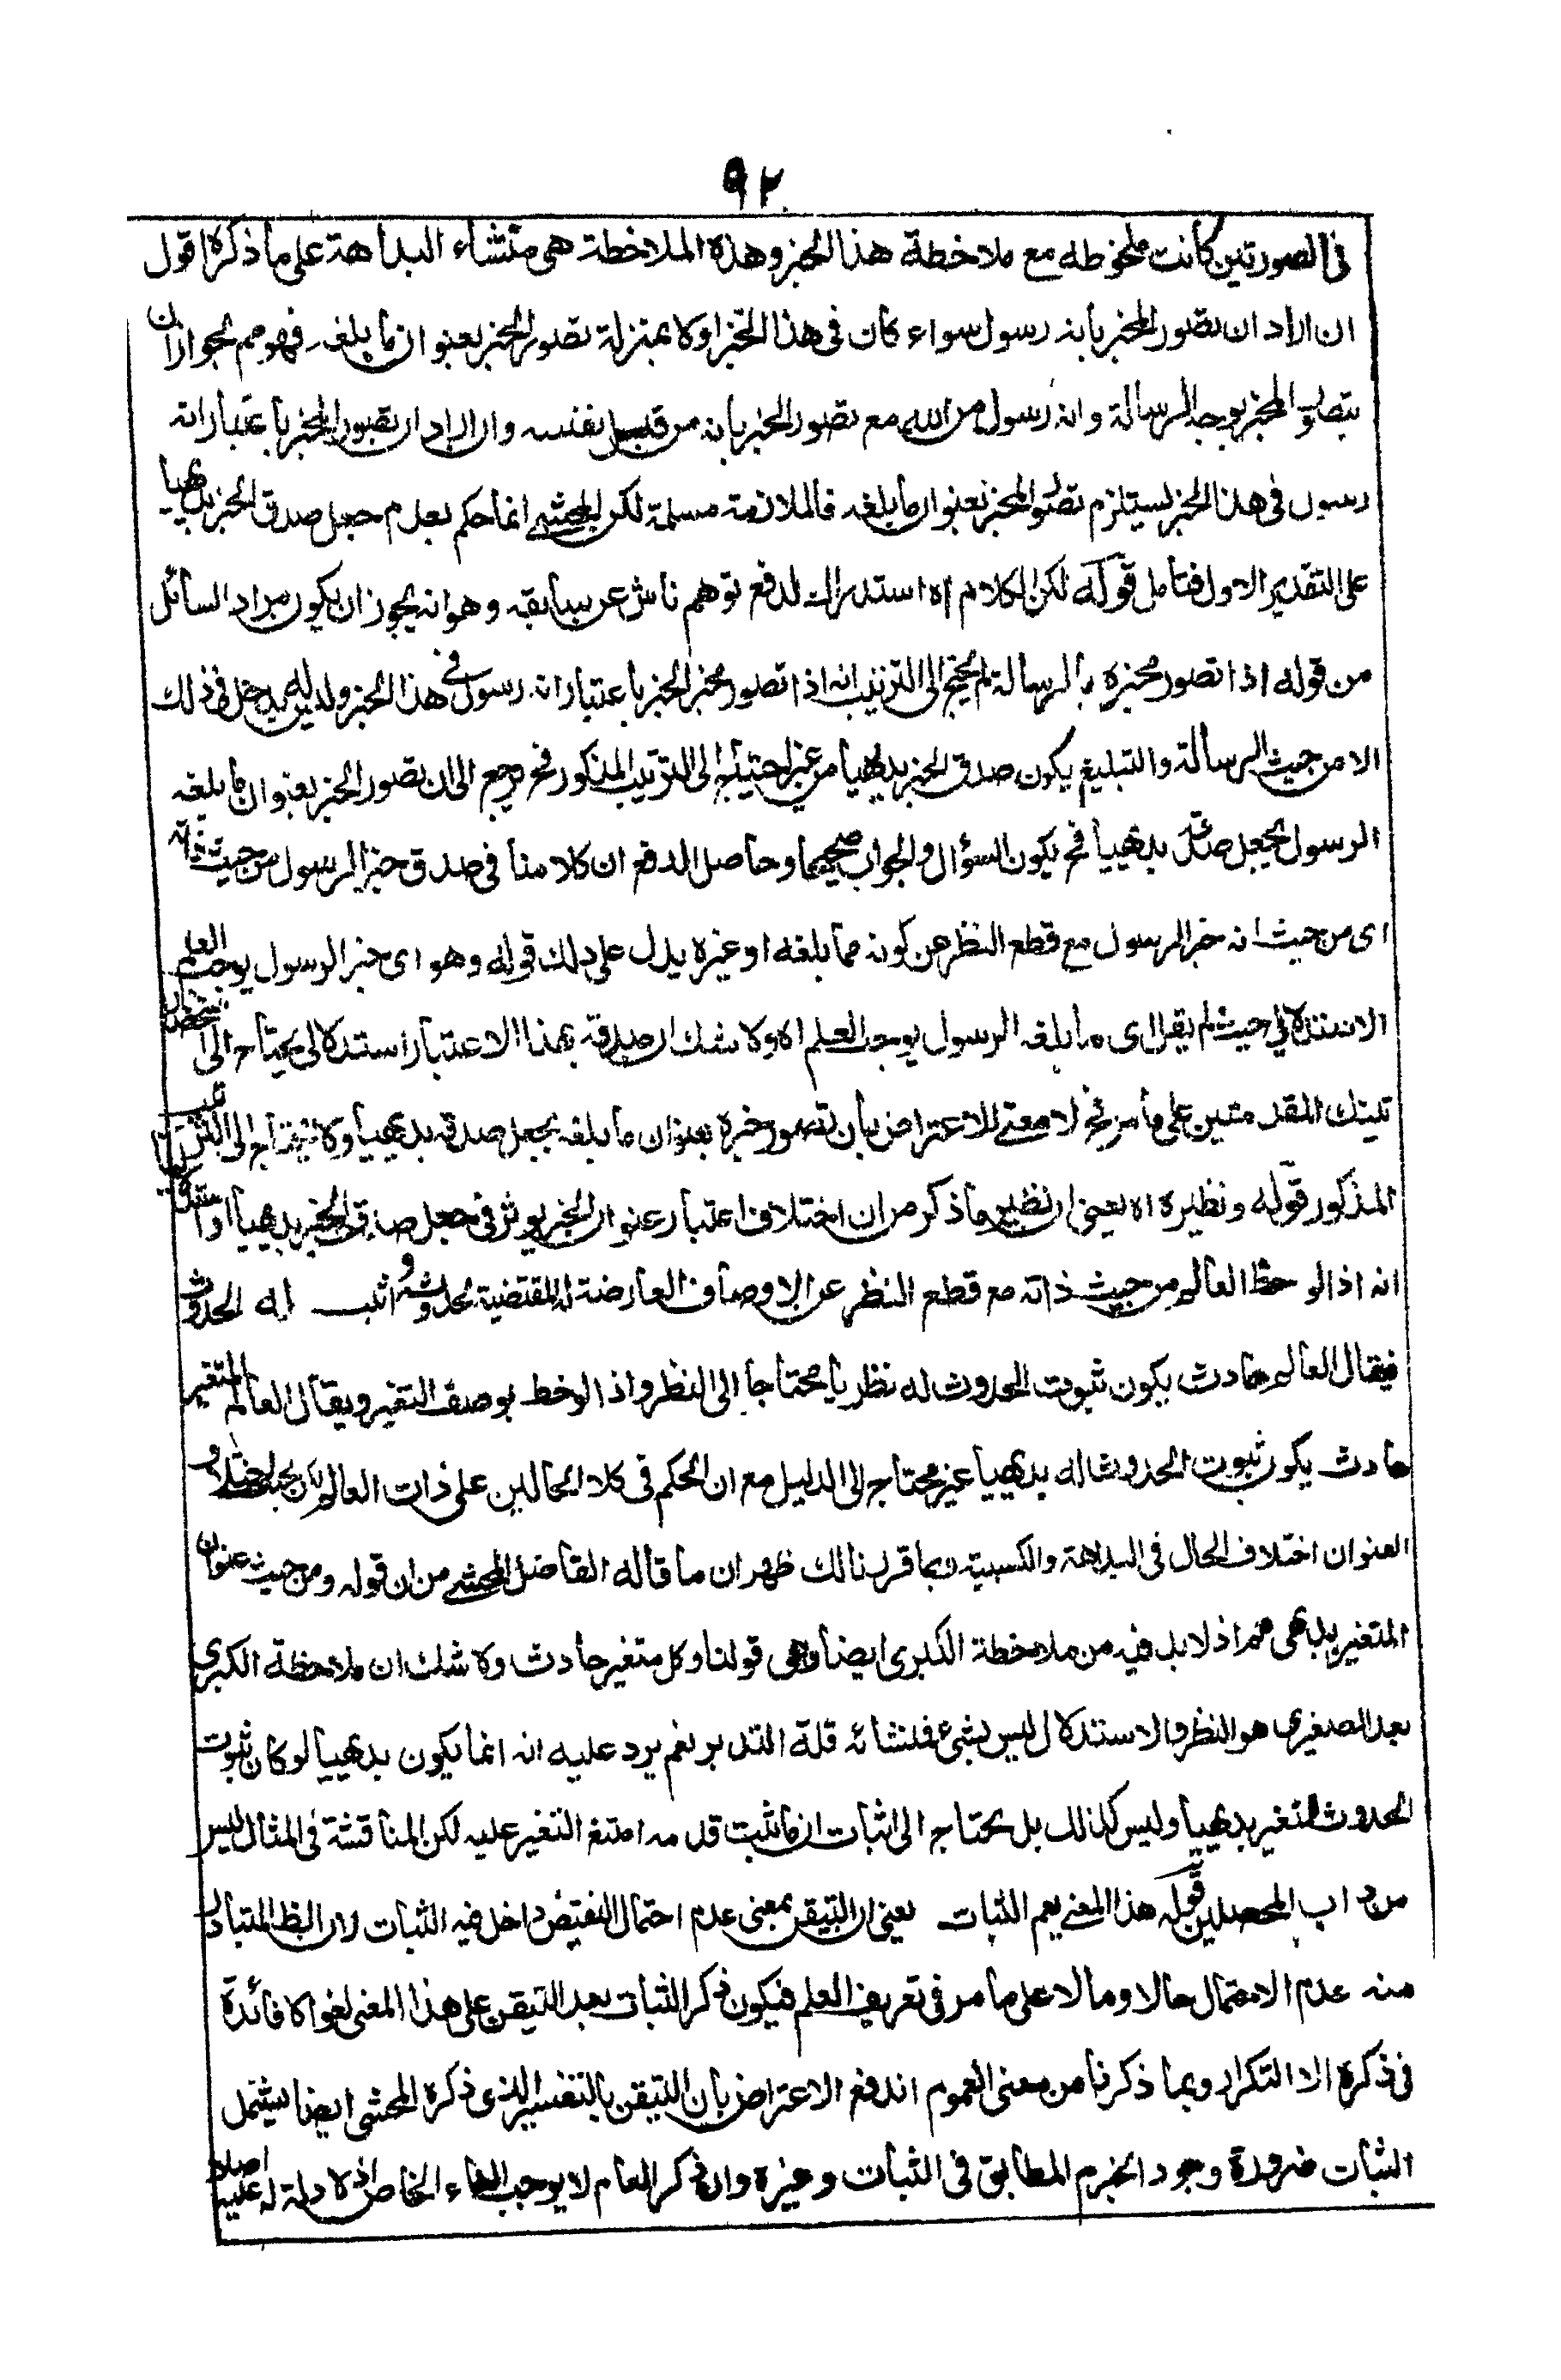 ٩٢
فى الصورتين كانت ملحوظه مع ملاحظة هذا الخبر وهذه الملاحظة هى منشاء البداهة على ما ذكره اقول
ان اراد ان تصور المخبر بانه رسول سواء كان فى هذا الخبر اولا بمنزلة تصور الخبر بعنوان ما بلغه فهو مم لجواز ان
يتصور المخبر بوجه الرسالة وانه رسول من الله مع تصور الخبر بانه من قبل نفسه وان اراد ان تصور المخبر باعتبار انه
رسول فى هذا الخبر يستلزم تصور الخبر بعنوان ما بلغه فالملازمة مسلمة لكن المحشى انما حكم بعدم جعل صدق الخبر بديهيا
على التقدير الاول فتامل قوله لكن الكلام اه استدراك لدفع توهم ناش عن سابقه وهو انه يجوز ان يكون مراد السائل
من قوله اذا تصور مخبره بالرسالة لم يحتج الى الترتيب انه اذا تصور مخبر الخبر باعتبار انه رسول فى هذا الخبر وليس له مدخل فى ذلك
الا من حيث الرسالة والتبليغ يكون صدق الخبر بديهيا من غير احتياج الى الترتيب المذكور فحٍ يرجع الى ان تصور الخبر بعنوان ما بلغه
الرسول يجعل صدقه بديهيا فحٍ يكون السؤال والجواب صحيحا وحاصل الدفع ان كلامنا فى صدق خبر الرسول من حيث ذاته
اى من حيث انه خبر الرسول مع قطع النظر عن كونه مما بلغه او غيره يدل على ذلك قوله وهو اى خبر الرسول يوجب العلم
الاستدلالى حيث لم يقل اى ما بلغه الرسول يوجب العلم اه ولا شك ان صدقه بهذا الاعتبار استدلالى يحتاج الى استحضار
تينك المقدمتين على ما مر فحٍ لا معنى للاعتراض بان تصور خبره بعنوان ما بلغه يجعل صدقه بديهيا ولا يحتاج الى الترتيب
المذكور قوله ونظيره اه يعنى ان نظير ما ذكر من ان اختلاف اعتبار عنوان الخبر يوثر فى جعل صدق الخبر بديهيا او استدلاليا
انه اذا لوحظ العالم من حيث ذاته مع قطع النظر عن الاوصاف العارضة له المقتضية لحدوثه واثبت له الحدوث
فيقال العالم حادث يكون ثبوت الحدوث له نظريا محتاجا الى النظر واذا لوحظ بوصف التغير ويقال العالم المتغير
حادث يكون ثبوت الحدوث له بديهيا غير محتاج الى الدليل مع ان الحكم فى كلا الحالين على ذات العالم لكن يجب اختلاف
العنوان اختلاف الحال فى البداهة والكسبية وبما قررنا لك ظهر ان ما قاله الفاضل المحشى من ان قوله ومن حيث عنوان
المتغير بديهى مم اذ لابد فيه من ملاحظة الكبرى ايضا وهى قولنا وكل متغير حادث ولا شك ان ملاحظة الكبرى
بعد الصغرى هو النظر والاستدلال ليس بشئ فمنشائه قلة التدبر نعم يرد عليه انه انما يكون بديهيا لو كان ثبوت
الحدوث للتغير بديهيا وليس كذلك بل يحتاج الى اثبات ان ما ثبت قدمه امتنع التغير عليه لكن المناقشة فى المثال ليس
من داب المحصلين قوله هذا المعنى يعم الثبات يعنى ان التيقن بمعنى عدم احتمال النقيض داخل فيه الثبات لان الظ المتبادر
منه عدم الاحتمال حالا ومالا على ما مر فى تعريف العلم فيكون ذكر الثبات بعد التيقن على هذا المعنى لغوا لا فائدة
فى ذكره الا التكرار وبما ذكرنا من معنى العموم اندفع الاعتراض بان التيقن بالتفسير الذى ذكره المحشى ايضا يشتمل
الثبات ضرورة وجود الجزم المطابق فى الثبات وغيره وان ذكر العام لا يوجب الغاء الخاص اذ لا دلالة له عليه اصلا